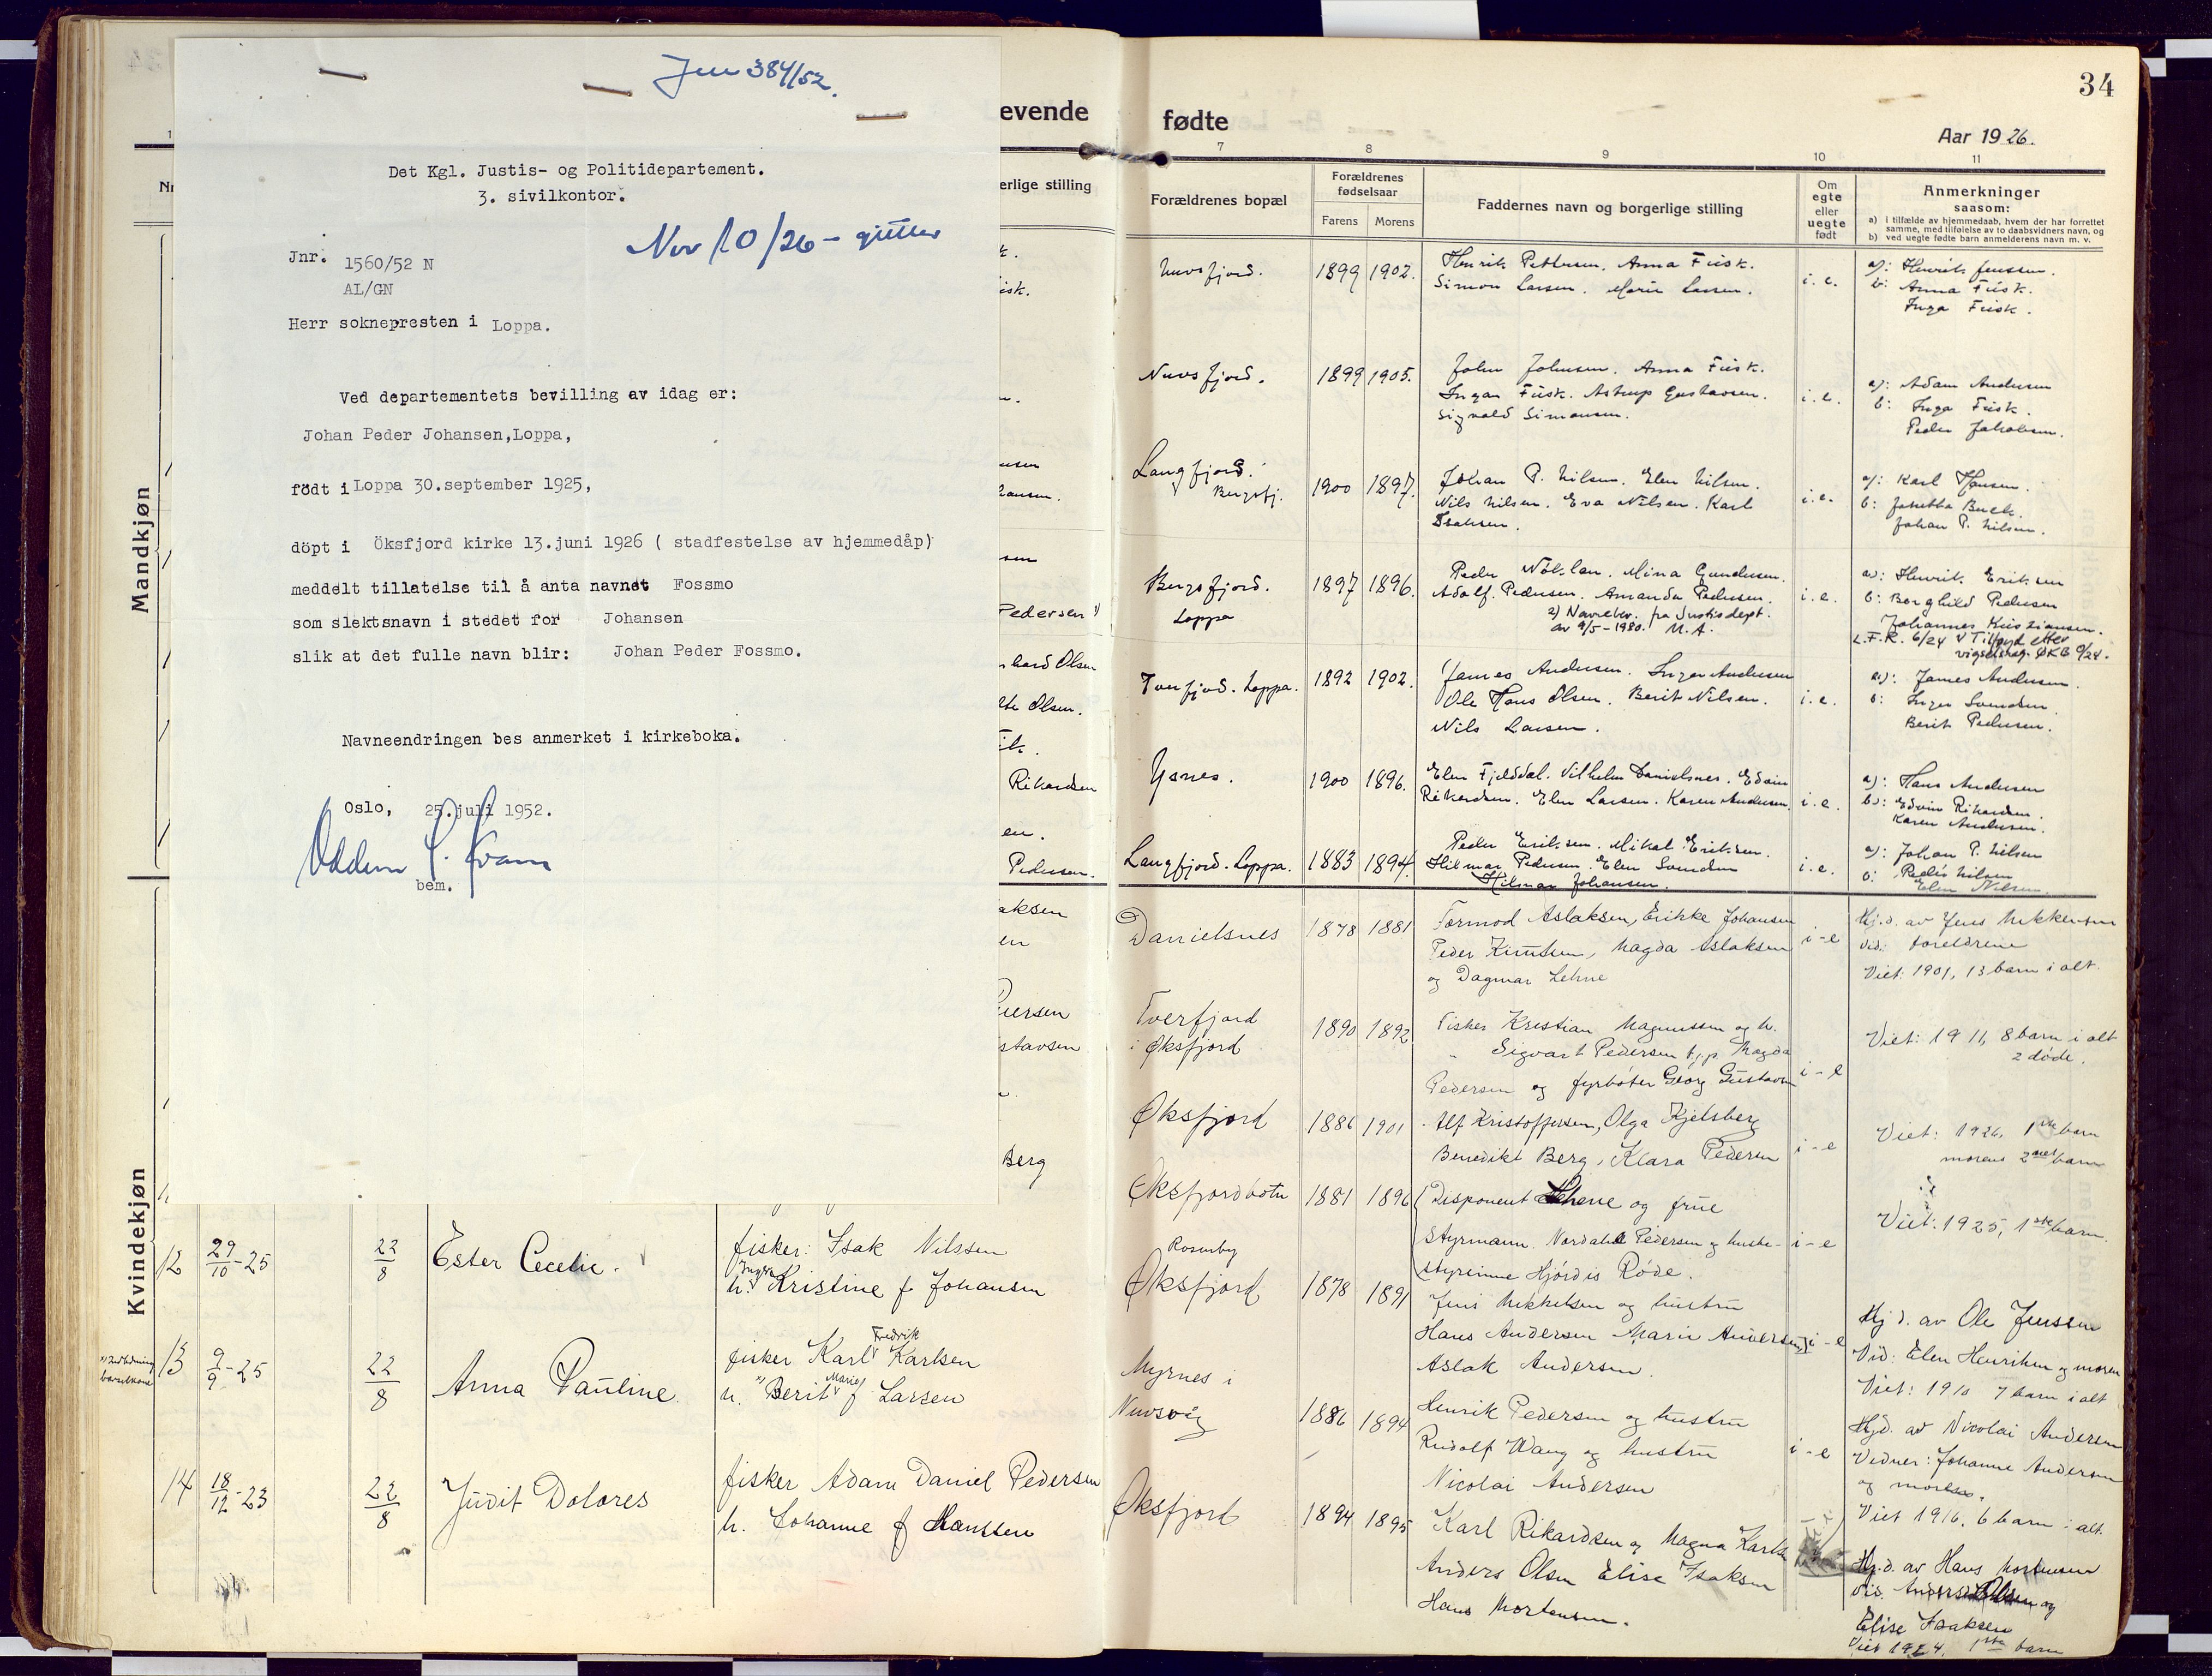 Jnr 384/52.
Det Kgl. Justis- og Politidepartement.
3. sivilkontor.
Nr 10/26 - gutter
Jnr. 1560/52 N
AL/GN
Herr soknepresten i Loppa.
Ved departementets bevilling av idag er:
Johan Peder Johansen, Loppa,
født i Loppa 30.september 1925,
döpt i Öksfjord kirke 13.juni 1926 ( stadfestelse av hjemmedåp)
meddelt tillatelse til å anta navnet Fossmo
som slektsnavn i stedet for Johansen
slik at det fulle navn blir: Johan Peder Fossmo.
Navneendringen bes anmerket i kirkeboka.
Oslo, 25.juli 1952.
bem.
Mandkjøn
Kvindekjøn
evende
erlige stilling
Pedersen
hard Olsen
Olsen.
Rikardsen
en.
Pedersen.
aksen
en
stavsen
Berg
12 29/10-25 22/8 Ester Cecelie. fisker: Isak Nilssen
h. Kristine f Johansen
13 9/9-25 22/8 Anna Pauline fisker Karl Fredrik Karlsen
h. Berit Marie f. Larsen
14 18/12-23 22/8 Judit Dolores fisker Adam Daniel Pedersen
h. Johanne f Hanssen
34
fødte
Aar 1926.
7 8 9 10 11
Forældrenes bopæl
Forældrenes fødselsaar
Farens Morens
Faddernes navn og borgerlige stilling
Om egte eller uegte født
Anmerkninger
saasom:
a) i tilfælde av hjemmedaab, hvem der har forrettet
samme, med tilføielse av to daabsvidners navn, og
b) ved uegte fødte barn anmelderens navn m. v.
Nuvsfjord. 1899 1902. Henrik Pettersen. Anna Fiisk. i.e. a): Henrik Jenssen.
Simon Larsen. Marie Larsen. b: Anna Fiisk.
Inga Fiisk.
Nuvsfjord. 1899 1905. John Johnsen. Anna Fiisk. i.e. a): Adam Andersen
Ingar Fiisk. Astrup Gustavsen. b: Inga Fiisk.
Sigvald Simonsen. Peder Jakobsen.
Langfjord. Bergsfj. 1900 1897. Johan P. Nilsen. Elen Nilsen. i.e. a): Karl Hansen.
Nils Nilsen. Eva Nilsen. Karl
Isaksen. Johan P. Nilsen.
Bergsfjord. Loppa 1897 1896. Peder. Mina Gundersen. i.e. a): Henrik Eriksen
Adolf Pedersen. Amanda Pedersen. b: Borghild Pedersen
2) Navnebev. fra Justisdept. Johannes Kristiansen.
av 9/5-1980. M.A. L.F.R. 6/24
Tverfjord. Loppa. 1892 1902. James Andersen. Inger Andersen i.e. a): James Andersen.
Ole Hans Olsen. Berit Nilsen. b: Inger Svendsen
Nils Larsen. Berit Pedersen.
Ysnes. 1900 1896. Elen Fjelddal. Vilhelm Danielsnes. Edvin i.e. a): Hans Andersen
Rikardsen. Elen Larsen. Karen Andersen. b): Edvin Rikardsen.
Karen Andersen.
Langfjord. Loppa. 1883 1894. Peder Eriksen. Mikal Eriksen. i.e. a): Johan P. Nilsen
Hilmar Pedersen. Elen Svendsen b: Peder Nilsen
Hilmar Johansen. Elen Nilsen.
Danielsnes 1878 1881 Tormod Aslaksen, Erikke Johansen i-e Hj.d. av Jens Mikkelsen
Peder Knutsen, Magda Aslaksen Vid: foreldrene
og Dagmar Lehne Viet: 1901, 13 barn i alt.
Tverfjord i Øksfjord 1890 1892 Fisker Kristian Magnussen og h. i-e Viet: 1911, 8 barn i alt
Sigvart Pedersen Magda 2 døde.
Pedersen og fyrbøter Georg Gustavsen
Øksfjord 1886 1901 Alf Kristoffersen, Olga Kjelsberg i-e Viet: 1926, 1ste barn
Benedikt Berg, Klara Pedersen morens 2net barn
Øksfjordbotn 1881 1896 Disponent Lehne og frue i-e Viet. 1925, 1ste barn.
Styrmann Nordahl Pedersen og hushe-
styrinne Hjördis Röde.
Rosenby
Øksfjord 1878 1891 Jens Mikkelsen og hustru i-e Hj d. av Ole Jenssen
Hans Andersen Marie Andersen Vid: Elen Henriksen og moren
Aslak Andersen. Viet: 1910 7 barn i alt
Myrnes i
Nuvsvåg 1886 1894 Henrik Pedersen og hustru i-e Hjd. av Nicolai Andersen
Rudolf Wang og hustru Vidner: Johanne Andersen
Nicolai Andersen og moren.
Viet 1916. 6 barn i alt.
Øksfjord 1894 1895 Karl Rikardsen og Magna Karlsen Hj.d. av Hans Mortensen
Anders Olsen Elise Isaksen Vid. Anders Olsen og
Hans Mortensen. Elise Isaksen
Viet 1924, 1ste barn